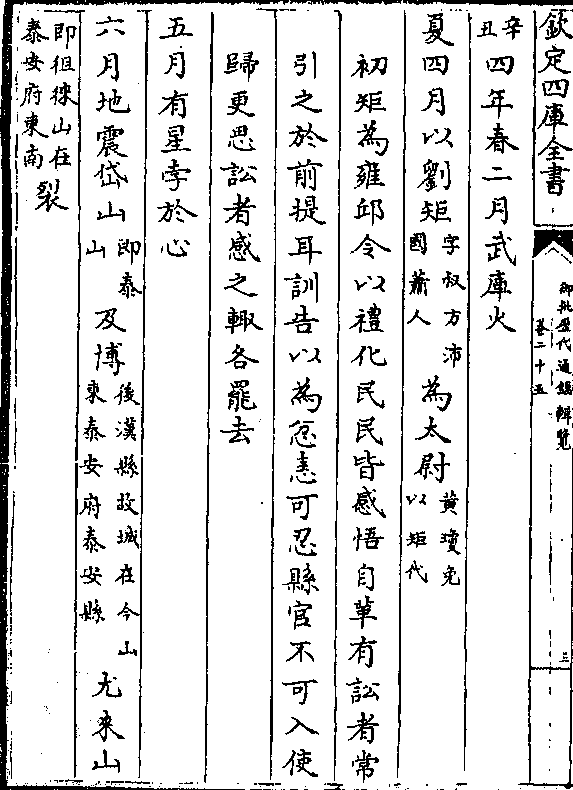 欽定四庫全書
御批歷代通鑑輯覽
卷二十五
三
辛丑四年春二月武庫火
夏四月以劉矩字叔方沛國蕭人為太尉黃瓊免以矩代
初矩為雍邱令以禮化民民皆感悟自革有訟者常
引之於前提耳訓告以為忿恚可忍縣官不可入使
歸更思訟者感之輙各罷去
五月有星孛於心
六月地震岱山即泰山及博後漢縣故城在今山東泰安府泰安縣尤來山
即徂徠山在泰安府東南裂